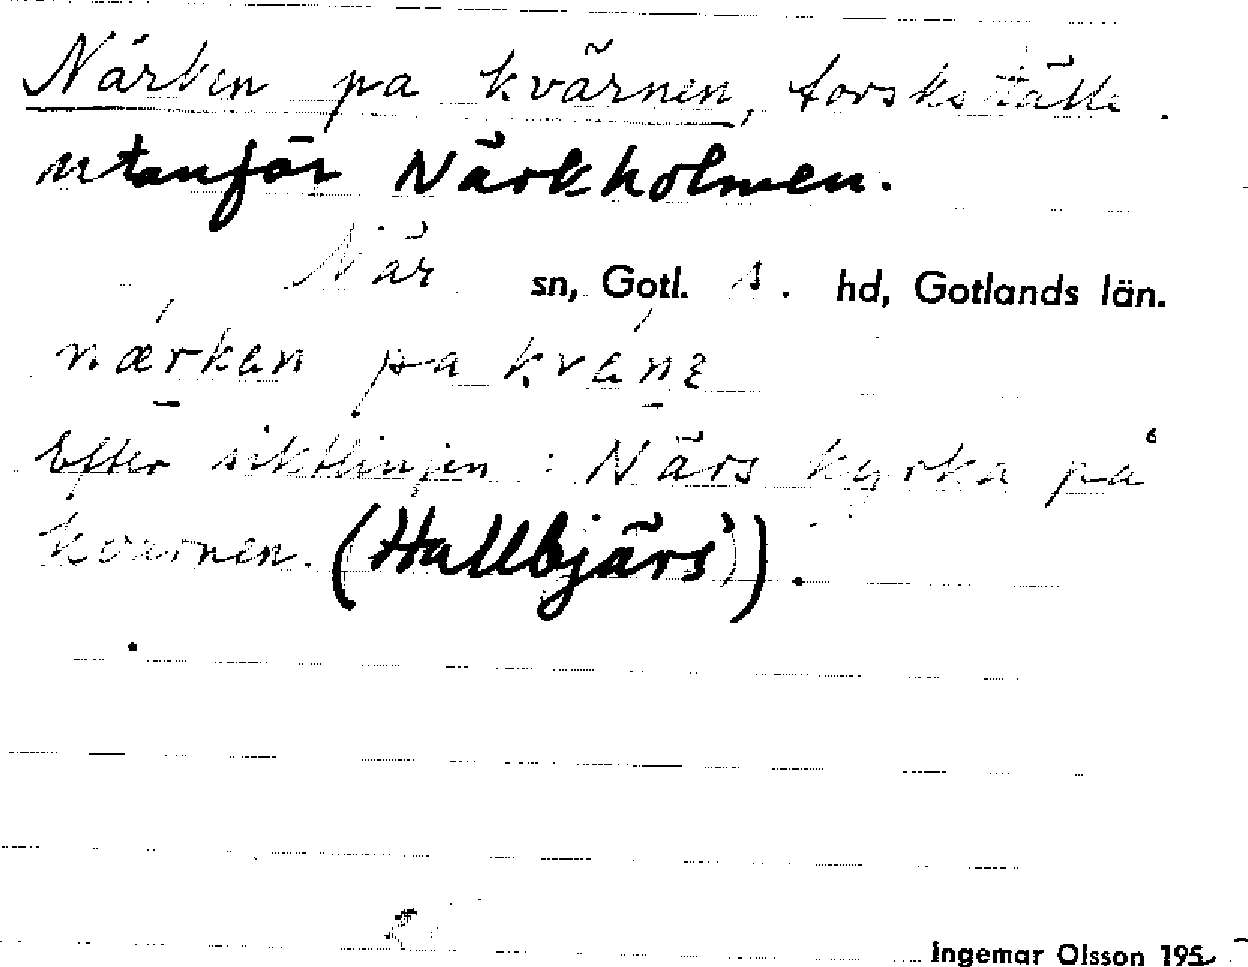 Närken pa kvärnen, torskställe
utanför Närkholmen.
När sn, Gotl. s. hd, Gotlands län.
nærken pa kvánɛ
Efter siktlinjen: Närs kyrka på
kvarnen. (Hallbjärs).
Ingemar Olsson 195